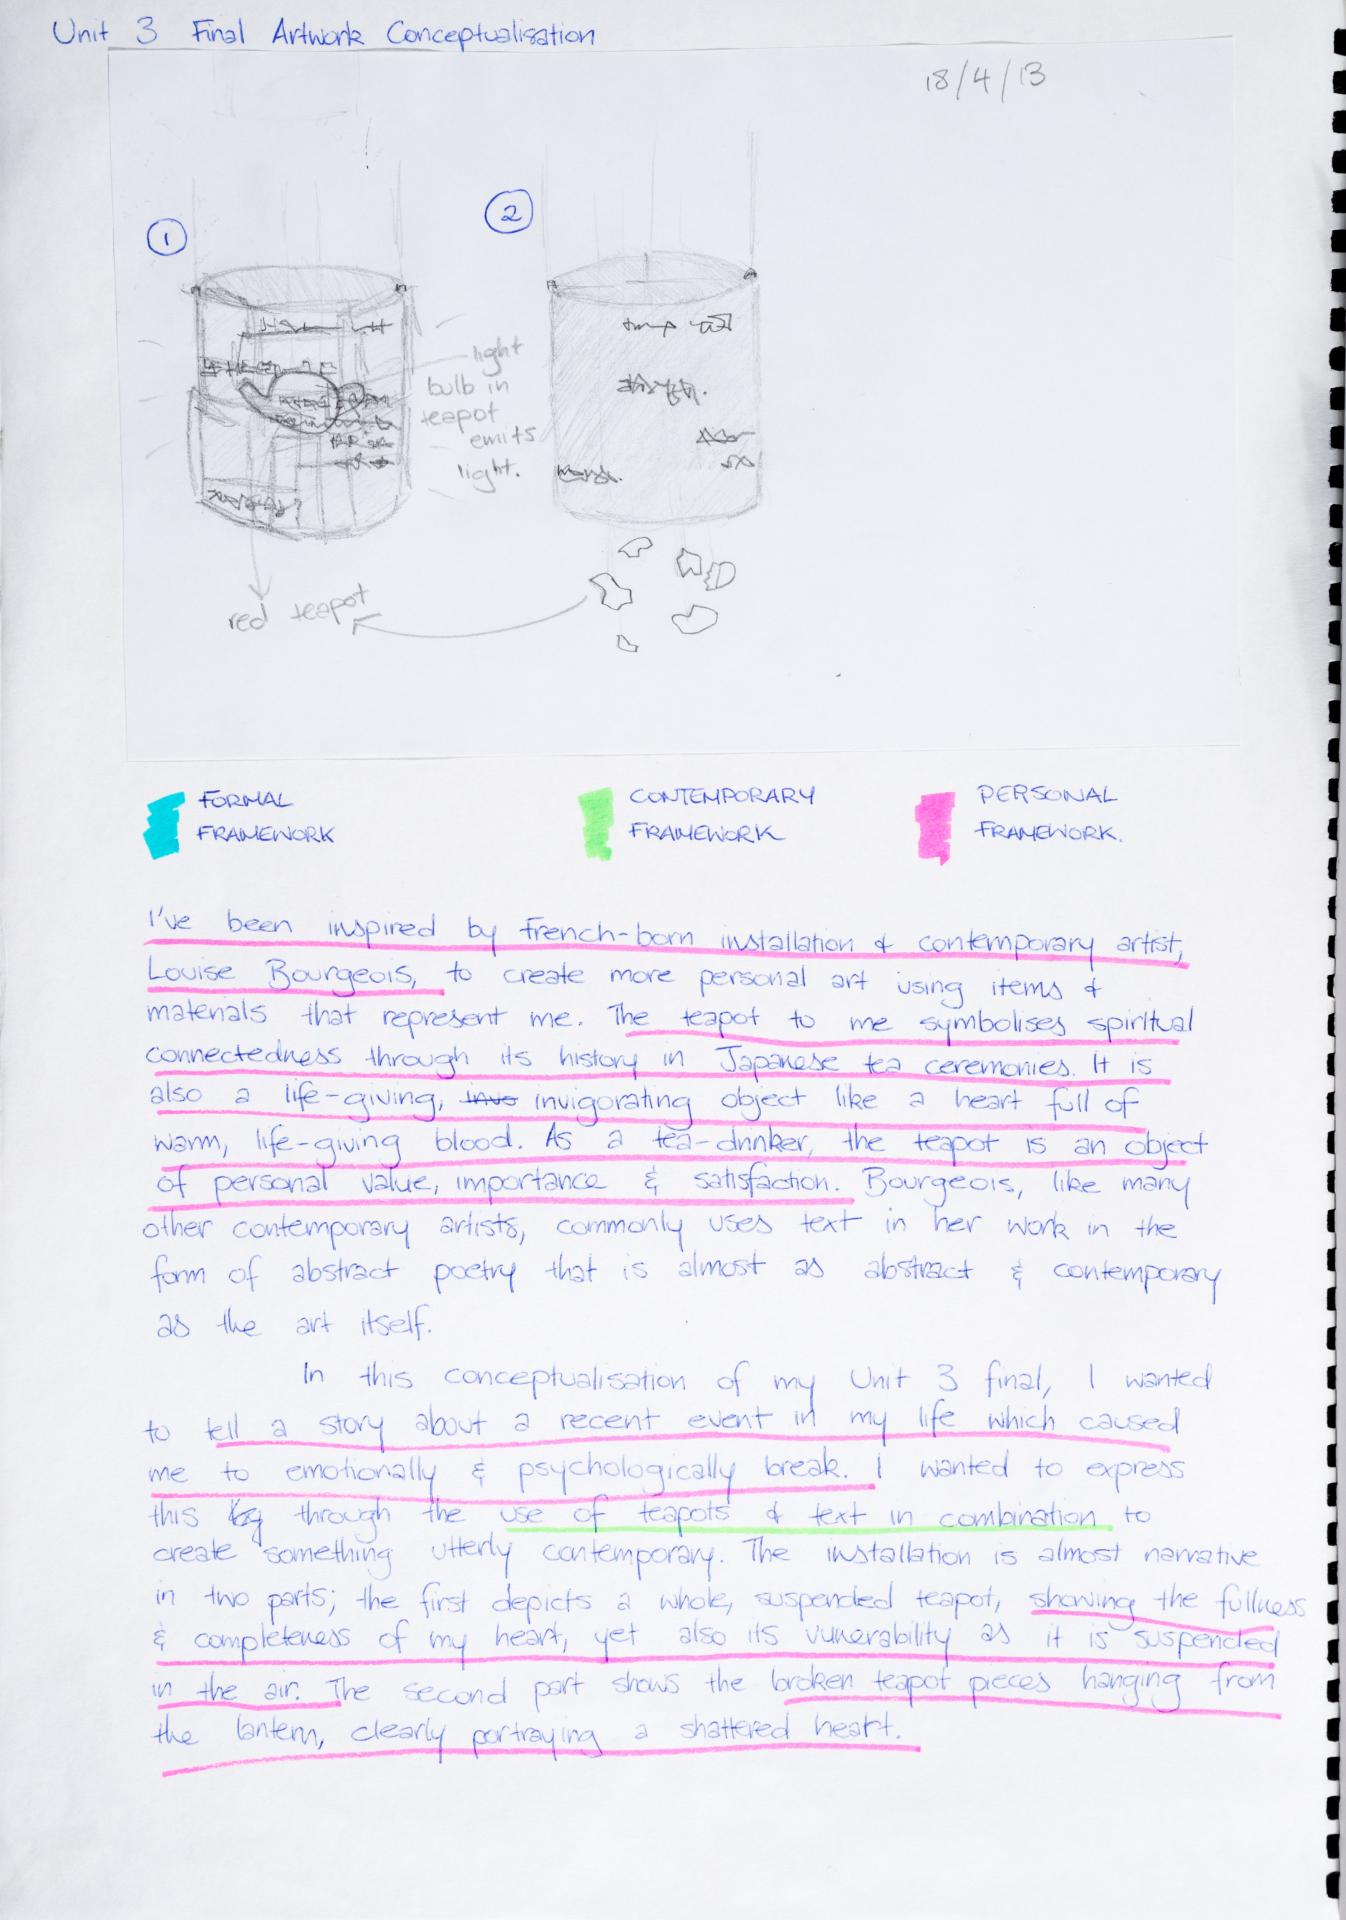 Unit 3 Final Artwork Conceptualisation
18/4/13
1
2
light
bulb in
teapot
emits
light.
red teapot
FORMAL
FRAMEWORK
CONTEMPORARY
FRAMEWORK
PERSONAL
FRAMEWORK.
I've been inspired by french-born installation & contemporary artist,
Louise Bourgeois, to create more personal art using items &
materials that represent me. The teapot to me symbolises spiritual
connectedness through its history in Japanese tea ceremonies. It is
also a life-giving, invo invigorating object like a heart full of
warm, life-giving blood. As a tea-drinker, the teapot is an object
of personal value, importance & satisfaction. Bourgeois, like many
other contemporary artists, commonly uses text in her work in the
form of abstract poetry that is almost as abstract & contemporary
as the art itself.
In this conceptualisation of my Unit 3 final, I wanted
to tell a story about a recent event in my life which caused
me to emotionally & psychologically break. I wanted to express
this through the use of teapots & text in combination to
create something utterly contemporary. The installation is almost narrative
in two parts; the first depicts a whole, suspended teapot, showing the fullness
& completeness of my heart, yet also its vunerability as it is suspended
in the air. The second part shows the broken teapot pieces hanging from
the lantern, clearly portraying a shattered heart.